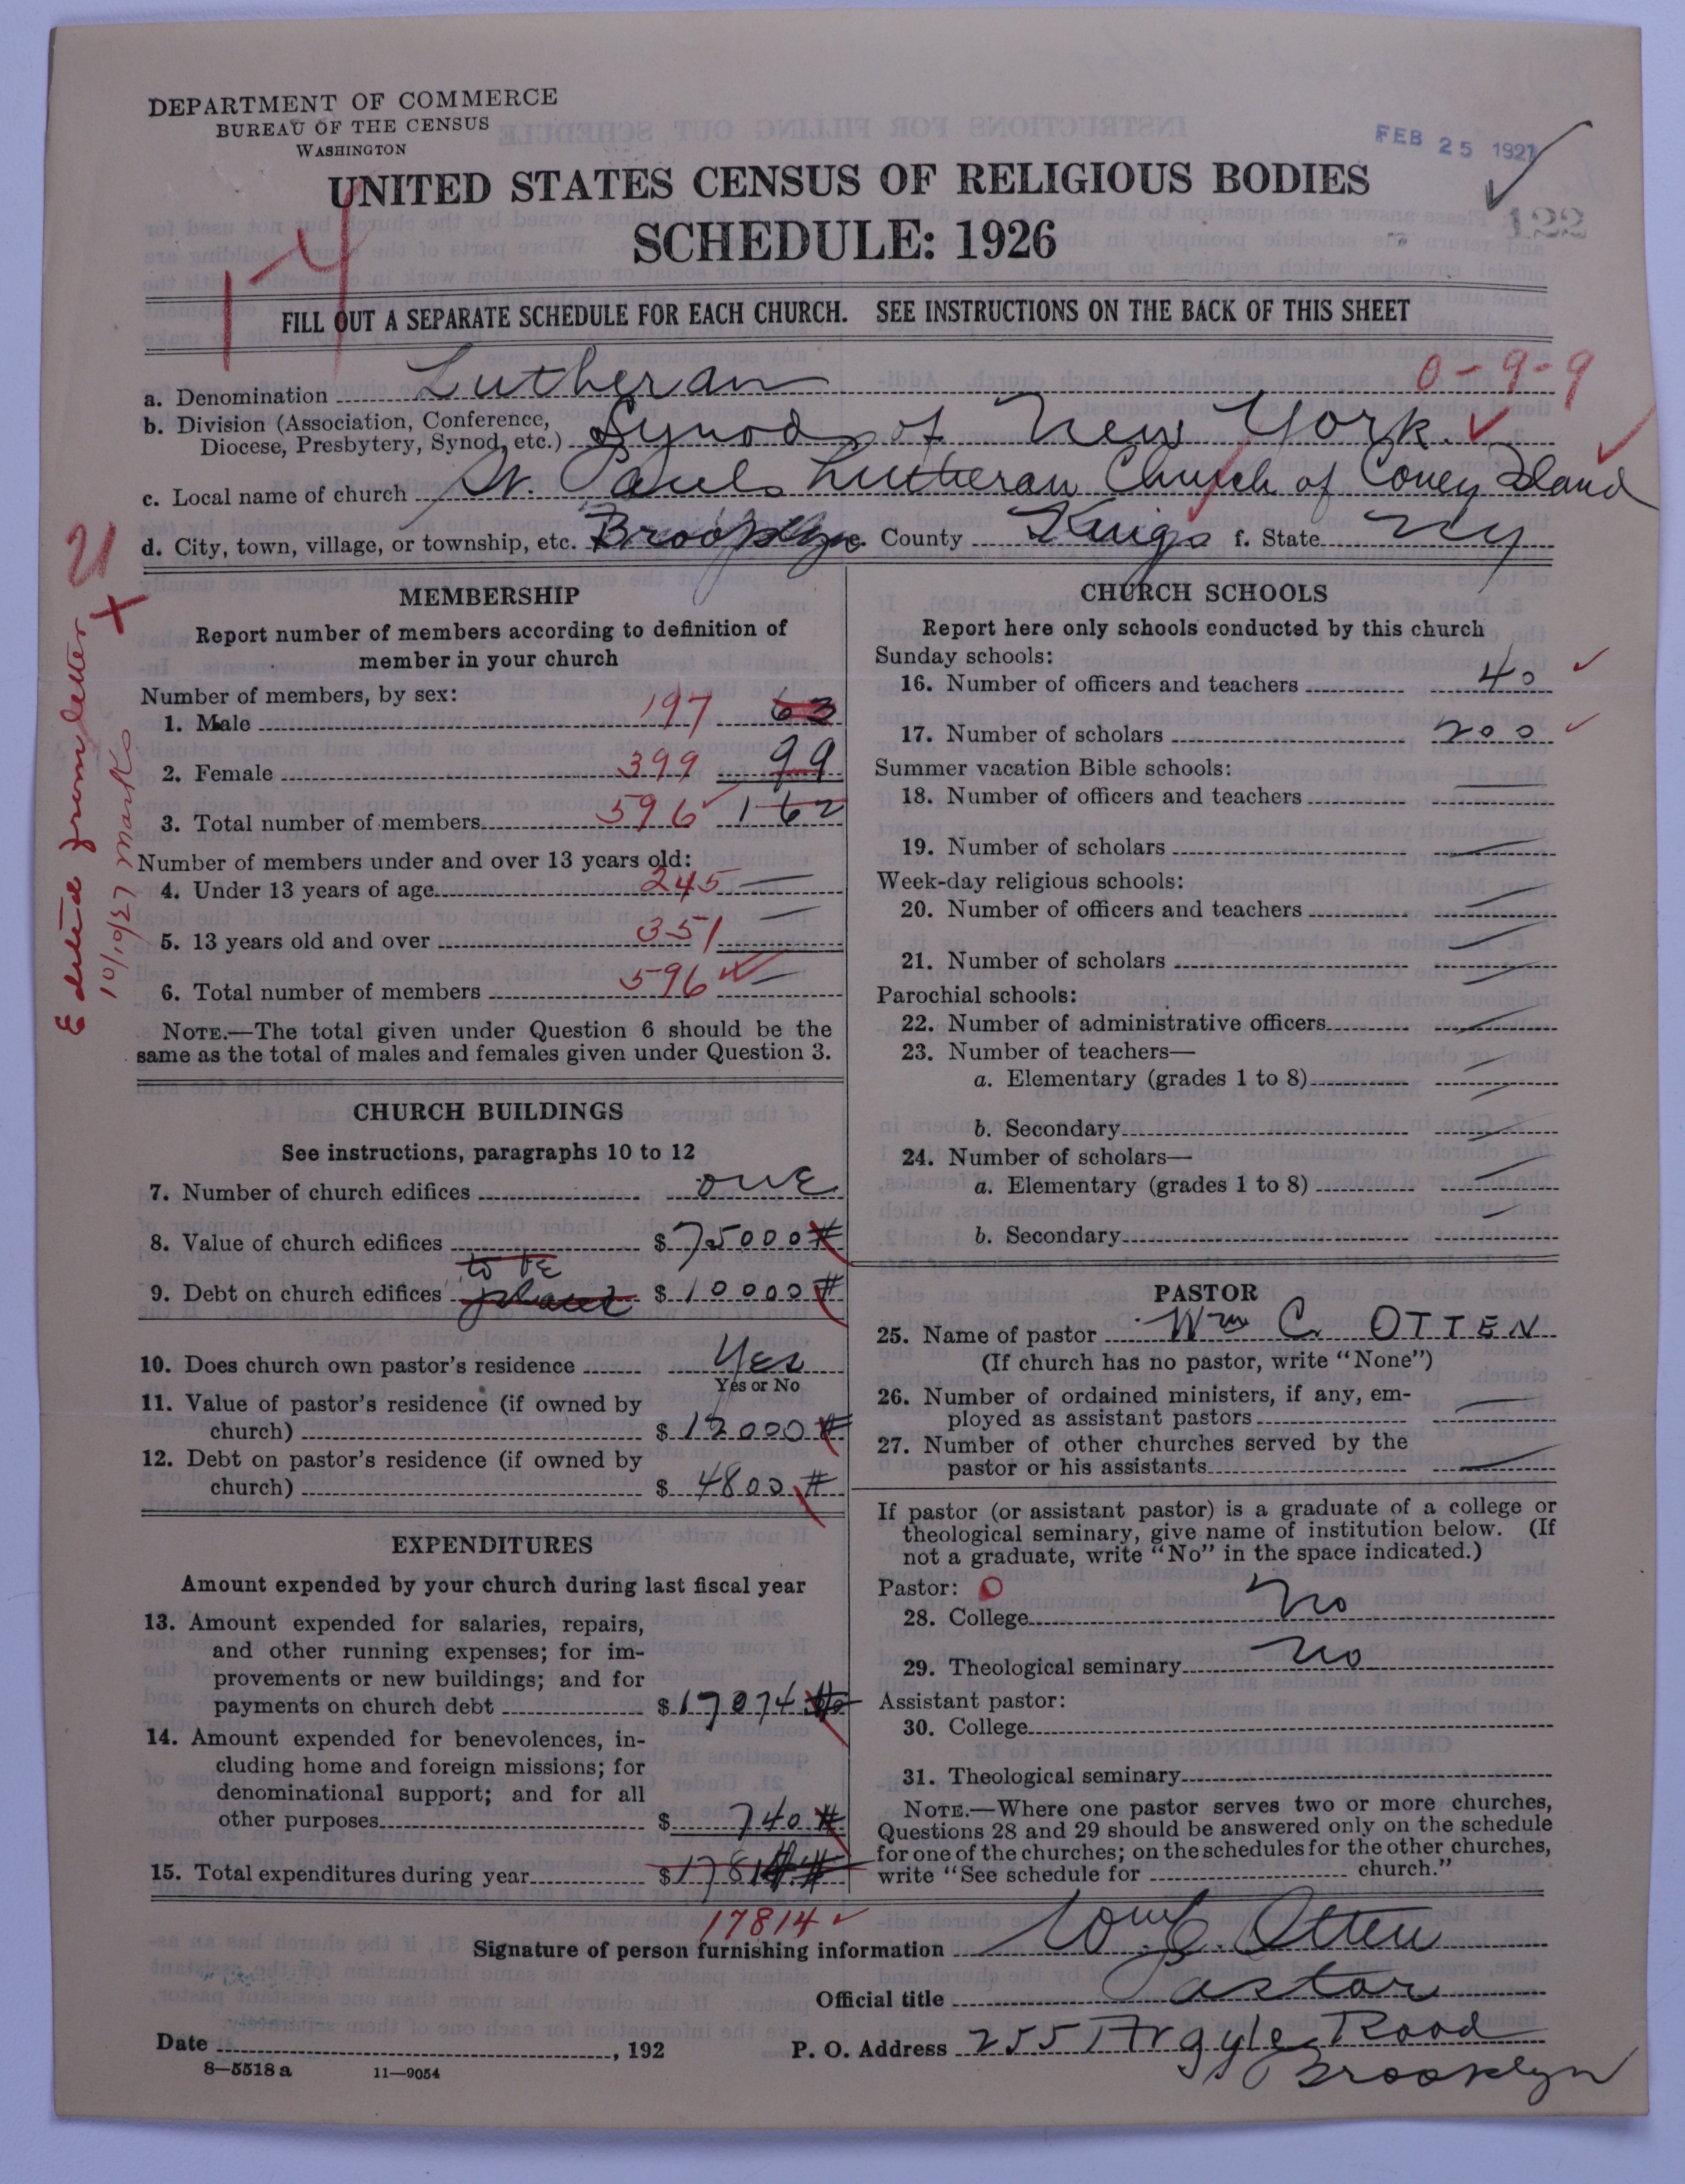 DEPARTMENT OF COMMERCE
BUREAU OF THE CENSUS
WASHINGTON
FEB 25 1927
UNITED STATES CENSUS OF RELIGIOUS BODIES
SCHEDULE: 1926
FILL OUT A SEPARATE SCHEDULE FOR EACH CHURCH. SEE INSTRUCTIONS ON THE BACK OF THIS SHEET
a. Denomination Lutheran 0-9-9
b. Division (Association, Conference,
Diocese, Presbytery, Synod, etc.) Synod of New York
c. Local name of church St. Pauls Lutheran Church of Coney Island
d. City, town, village, or township, etc. Brooklyn e. County Kings f. State NY
Edited from letter
10/10/27 Marks
MEMBERSHIP
Report number of members according to definition of
member in your church
Number of members, by sex:
1. Male 197 63
2. Female 399 99
3. Total number of members 596 162
Number of members under and over 13 years old:
4. Under 13 years of age 245 —
5. 13 years old and over 351 —
6. Total number of members 596 —
NOTE.—The total given under Question 6 should be the
same as the total of males and females given under Question 3.
CHURCH BUILDINGS
See instructions, paragraphs 10 to 12
7. Number of church edifices one
8. Value of church edifices $75000
to be
9. Debt on church edifices placed $10000
10. Does church own pastor's residence Yes
Yes or No
11. Value of pastor's residence (if owned by
church) $12000
12. Debt on pastor's residence (if owned by
church) $4800
EXPENDITURES
Amount expended by your church during last fiscal year
13. Amount expended for salaries, repairs,
and other running expenses; for im-
provements or new buildings; and for
payments on church debt $17074
14. Amount expended for benevolences, in-
cluding home and foreign missions; for
denominational support; and for all
other purposes $740
15. Total expenditures during year $17814
17814
CHURCH SCHOOLS
Report here only schools conducted by this church
Sunday schools:
16. Number of officers and teachers 40
17. Number of scholars 200
Summer vacation Bible schools:
18. Number of officers and teachers —
19. Number of scholars —
Week-day religious schools:
20. Number of officers and teachers —
21. Number of scholars —
Parochial schools:
22. Number of administrative officers —
23. Number of teachers—
a. Elementary (grades 1 to 8) —
b. Secondary —
24. Number of scholars—
a. Elementary (grades 1 to 8) —
b. Secondary —
PASTOR
25. Name of pastor Wm C. OTTEN
(If church has no pastor, write "None")
26. Number of ordained ministers, if any, em-
ployed as assistant pastors —
27. Number of other churches served by the
pastor or his assistants —
If pastor (or assistant pastor) is a graduate of a college or
theological seminary, give name of institution below. (If
not a graduate, write "No" in the space indicated.)
Pastor: O
28. College No
29. Theological seminary No
Assistant pastor:
30. College
31. Theological seminary
NOTE.—Where one pastor serves two or more churches,
Questions 28 and 29 should be answered only on the schedule
for one of the churches; on the schedules for the other churches,
write "See schedule for church."
Signature of person furnishing information Wm C. Otten
Official title Pastor
Date , 192
P. O. Address 255 Argyle Road
Brooklyn
8—5518 a 11—9054